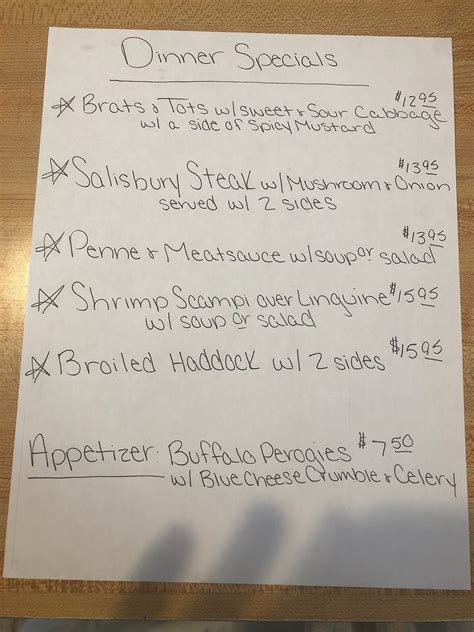 Dinner Specials
☆ Brats & Tots w/sweet & Sour Cabbage $12.95
w/ a side of Spicy Mustard
☆ Salisbury Steak w/Mushroom & Onion $13.95
served w/ 2 sides
☆ Penne & Meatsauce w/soup or salad $13.95
☆ Shrimp Scampi over Linguine $15.95
w/ soup or salad
☆ Broiled Haddock w/ 2 sides $15.95
Appetizer: Buffalo Perogies $7.50
w/ Blue Cheese Crumble & Celery